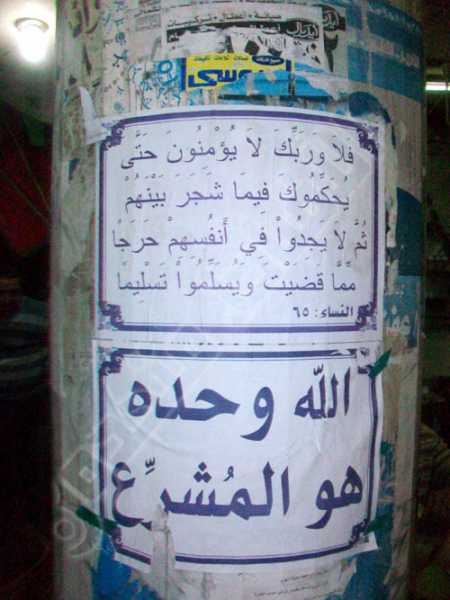 صيانة - اعطال - تركيبات
فلا وَرَبِّكَ لَا يُؤْمِنُونَ حَتَّى
يُحَكِّمُوكَ فِيمَا شَجَرَ بَيْنَهُمْ
ثُمَّ لَا يَجِدُواْ فِي أَنفُسِهِمْ حَرَجًا
مِّمَّا قَضَيْتَ وَيُسَلِّمُواْ تَسْلِيمًا
النساء: ٦٥
الله وحده
هو المُشرِّع